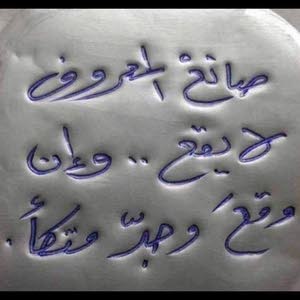 صانعْ المعروف
لا يقع .. وإن
وقعَ وجدّ متكأ.